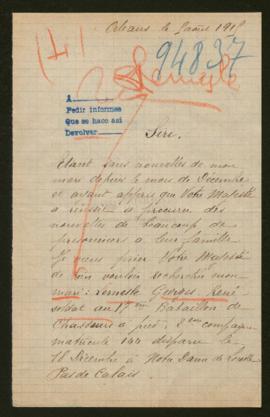 Orléans le 2 août 1915
(4)
94837
Lemesle
A
Pedir informes
Que se hace así
Devolver
Sire,
Etant sans nouvelles de mon
mari depuis le mois de Décembre
et ayant appris que Votre Majesté
a réussit a procurer des
nouvelles de beaucoup de
prisonniers a leur famille
Je viens prier Votre Majesté
de bien vouloir rechercher mon
mari: Lemesle Georges René
soldat au 17me Bataillon de
Chasseurs a pied; 8me compagnie
matricule 144 disparu le
18 Décembre à Notre Dame de Lorette
Pas de Calais.